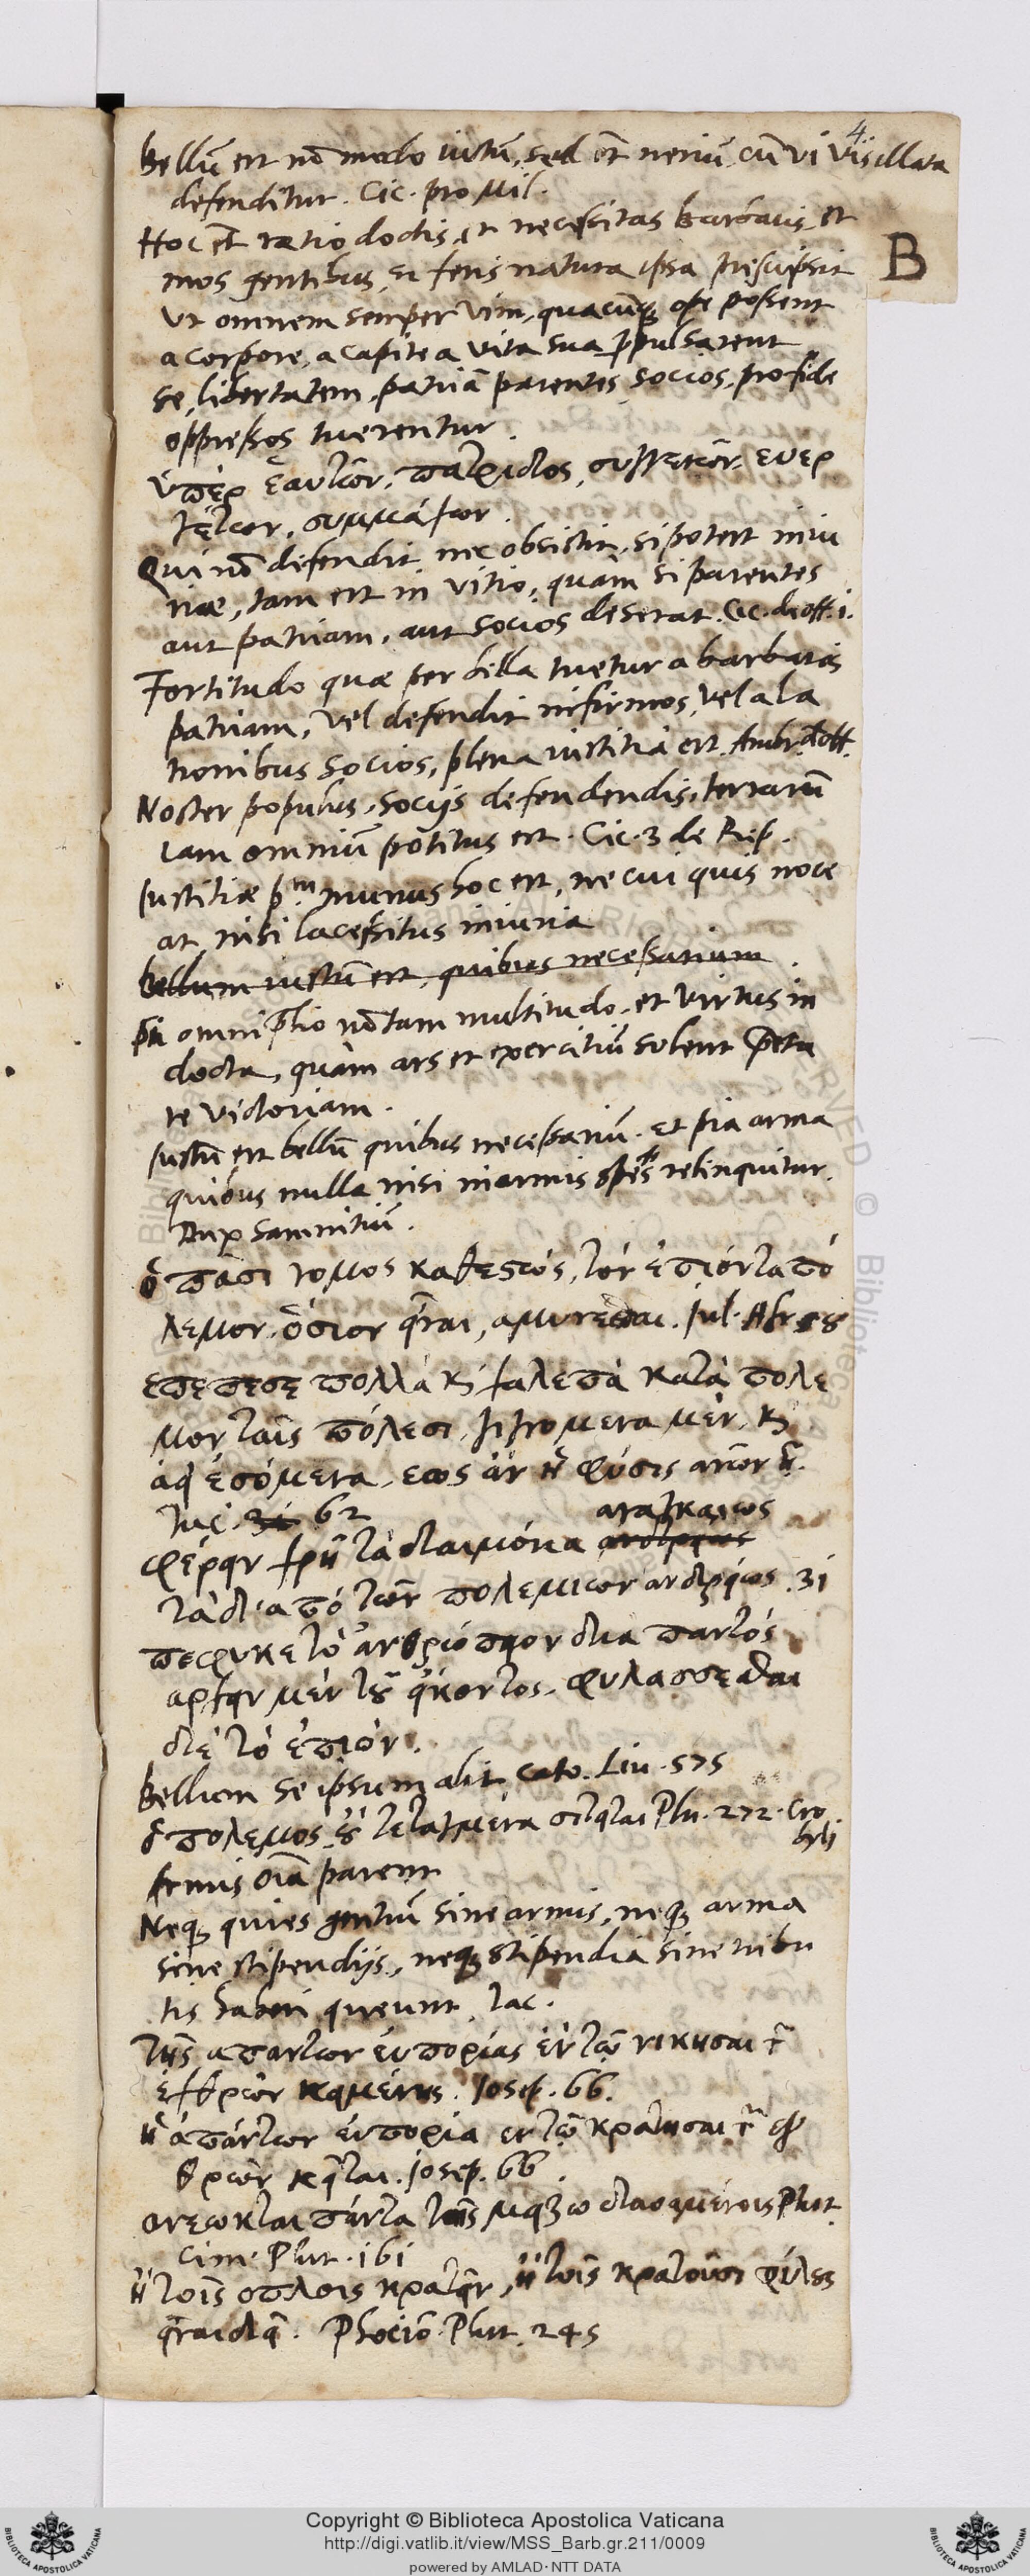 4.
Bellū est nō modo iustū, sed et neriū, cū vi vis illata
defenditur. Cic. pro Mil.
B
Hoc et ratio doctis, et necessitas barbaris, et
mos gentibus, et feris natura ipsa prescipsit
Vt omnem semper vim, quacūq; ope possent
a corpore, a capite a vita sua ꝓpulsarent
se, libertatem, patriā parentes, socios, pro fide
oppressos tuerentur.
ὑπὲρ ἑαυτῶν, πατρίδος, συγγενῶν, ευερ
γετων, συμμάχων.
Qui nō defendit, nec obsistit, si potest iniu
riae, tam est in vitio, quàm si parentes
aut patriam, aut socios deserat. Cic. de off. i.
Fortitudo quae per bella tuetur a barbaris
patriam, vel defendit infirmos, vel a la
tronibus socios, plena iustitia est. Ambr. d off.
Noster populus, socijs defendendis, terrarū
iam omniū potitus est. Cic. 3 de Rep.
Iustitiae pm munus hoc est, ne cui quis noce
at, nisi lacessitus iniuria
Bellum iustū est, quibus necessarium.
In omni plio nō tam multitudo, et virtus in
docta, quàm ars et exercitiū solent pesta
re victoriam.
Iustū est bellū quibus necessariū. et pia arma
quibus nulla nisi in armis spes relinquitur.
Dux Samnitiū.
ὁ πᾶσι νομος καθεστώς, τὸν ἐπιόντα πό
λεμον ὅσιον εἶναι, αμυνεσθαι. Iul. Afr
επεπεσε πολλὰ κ χαλεπὰ κατὰ πολε
μον ταῖς πόλεσι, γιγνομενα μὲν, κ
ἀεὶ ἐσόμενα, εως ἂν ἡ φύσις ανων ᾖ.
Τuc. 31 62
φέρειν χρὴ τὰ δαιμόνια αναγκαιως
τὰ δὲ ἀπὸ τῶν πολεμιων ανδρείως. 31
πεφυκε τὸ ἀνθρώπειον δια παντός
αρχειν μὲν τȣ εἴκοντος, φυλασσεσθαι
δὲ τὸ ἐπιόν.
Bellum se ipsum alit. Cato. Liu. 575
ὁ πολεμος ȣ τεταγμένα σιτεῖται Plu. 272. Cro
byli
Armis oīa parent
Neq; quies gentiū sine armis, neq; arma
sine stipendijs, neq; stipendia sine tribu
tis haberi queunt. Tac.
τῆς απαντων ευπορίας ἐν τῷ νικησαι τ
ἐχθρῶν κειμένης. Iosep. 66.
ἡ ἁπάντων ευπορία εν τῷ κρατησαι τ εχ
θρῶν κεῖται. Iosep. 66.
ανεωκται πάντα τοῖς
Cim. Plut. 161
ἢ τοῖς οπλοις κρατεῖν, ἢ τοῖς κρατοῦσι φίλȣς
εἶναι δεῖ. Phociō. Plut. 245
Copyright © Biblioteca Apostolica Vaticana
http://digi.vatlib.it/view/MSS_Barb.gr.211/0009
powered by AMLAD · NTT DATA
BIBLIOTECA APOSTOLICA VATICANA
BIBLIOTECA APOSTOLICA VATICANA